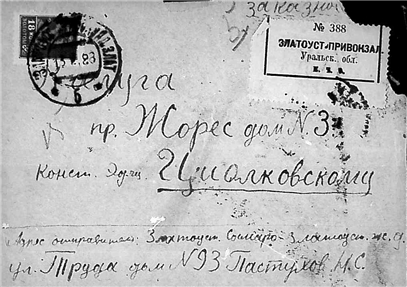 заказное
№ 388
ЗЛАТОУСТ-ПРИВОКЗАЛ
Уральск. обл.
18
Калуга
б
пр. Жорес дом N. 3
Конст. Эдуа.
Циолковскому
Адрес отправителя: Златоуст. Самаро-Златоуст. ж. д.
ул. Труда дом N 93 Пастухов Н.С.